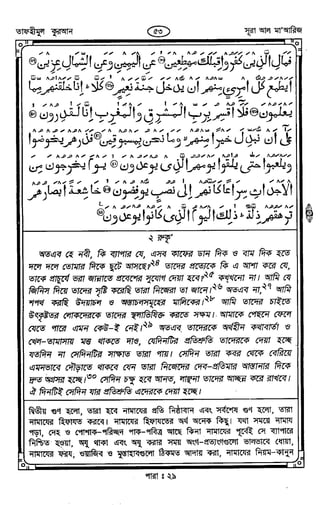 তাফহীমুল কুরআন
৫৩
সূরা আল মা'আরিজ
فَمَالِ الَّذِينَ كَفَرُوا قِبَلَكَ مُهْطِعِينَ ۝ عَنِ الْيَمِينِ وَعَنِ الشِّمَالِ عِزِينَ ۝
أَيَطْمَعُ كُلُّ امْرِئٍ مِّنْهُمْ أَن يُدْخَلَ جَنَّةَ نَعِيمٍ ۝ كَلَّا إِنَّا خَلَقْنَٰهُم مِّمَّا
يَعْلَمُونَ ۝ فَلَا أُقْسِمُ بِرَبِّ الْمَشَٰرِقِ وَالْمَغَٰرِبِ إِنَّا لَقَٰدِرُونَ ۝
عَلَىٰ أَن نُّبَدِّلَ خَيْرًا مِّنْهُمْ وَمَا نَحْنُ بِمَسْبُوقِينَ ۝ فَذَرْهُمْ يَخُوضُوا
وَيَلْعَبُوا حَتَّىٰ يُلَٰقُوا يَوْمَهُمُ الَّذِي يُوعَدُونَ ۝ يَوْمَ يَخْرُجُونَ مِنَ
الْأَجْدَاثِ سِرَاعًا كَأَنَّهُمْ إِلَىٰ نُصُبٍ يُوفِضُونَ ۝ خَاشِعَةً أَبْصَارُهُمْ
تَرْهَقُهُمْ ذِلَّةٌ ذَٰلِكَ الْيَوْمُ الَّذِي كَانُوا يُوعَدُونَ ۝
২ রুকূ'
অতএব হে নবী, কি ব্যাপার যে, এসব কাফের ডান দিক ও বাম দিক হতে
দলে দলে তোমার দিকে ছুটে আসছে?২৪ তাদের প্রত্যেকে কি এ আশা করে যে,
তাকে প্রাচুর্যে ভরা জান্নাতে প্রবেশের সুযোগ দেয়া হবে?২৫ কখ্খনো না। আমি যে
জিনিস দিয়ে তাদের সৃষ্টি করেছি তারা নিজেরা তা জানে।২৬ অতএব না,২৭ আমি
শপথ করছি উদয়াচল ও অস্তাচলসমূহের মালিকের।২৮ আমি তাদের চাইতে
উৎকৃষ্টতর লোকদেরকে তাদের স্থলাভিষিক্ত করতে সক্ষম। আমাকে পেছনে ফেলে
যেতে পারে এমন কেউ-ই নেই।২৯ অতএব তাদেরকে অর্থহীন কথাবার্তা ও
খেল-তামাসায় মত্ত থাকতে দাও, যেদিনটির প্রতিশ্রুতি তাদেরকে দেয়া হচ্ছে
যতদিন না সেদিনটির সাক্ষাত তারা পায়। সেদিন তারা কবর থেকে বেরিয়ে
এমনভাবে দৌড়াতে থাকবে যেন তারা নিজেদের দেব-প্রতিমার আস্তানার দিকে
দ্রুত অগ্রসর হচ্ছে।৩০ সেদিন চক্ষু হবে আনত, লাঞ্ছনা তাদের আচ্ছন্ন করে রাখবে।
ঐ দিনটিই সেদিন যার প্রতিশ্রুতি এদেরকে দেয়া হচ্ছে।
দ্বিতীয় গুণ হলো, তারা হবে নামাযের প্রতি নিষ্ঠাবান এবং সর্বশেষ গুণ হলো, তারা
নামাযের হিফাযত করবে। নামাযের হিফাযতের অর্থ অনেক কিছু। যথা সময়ে নামায
পড়া, দেহ ও পোশাক-পরিচ্ছদ পাক-পবিত্র আছে কিনা নামাযের পূর্বেই সে ব্যাপারে
নিশ্চিত হওয়া, অযু থাকা এবং অযু করার সময় অংগ-প্রত্যংগগুলো ভালভাবে ধোয়া,
নামাযের ফরয, ওয়াজিব ও মুস্তাহাবগুলো ঠিকমত আদায় করা, নামাযের নিয়ম-কানুন
পারা : ২৯